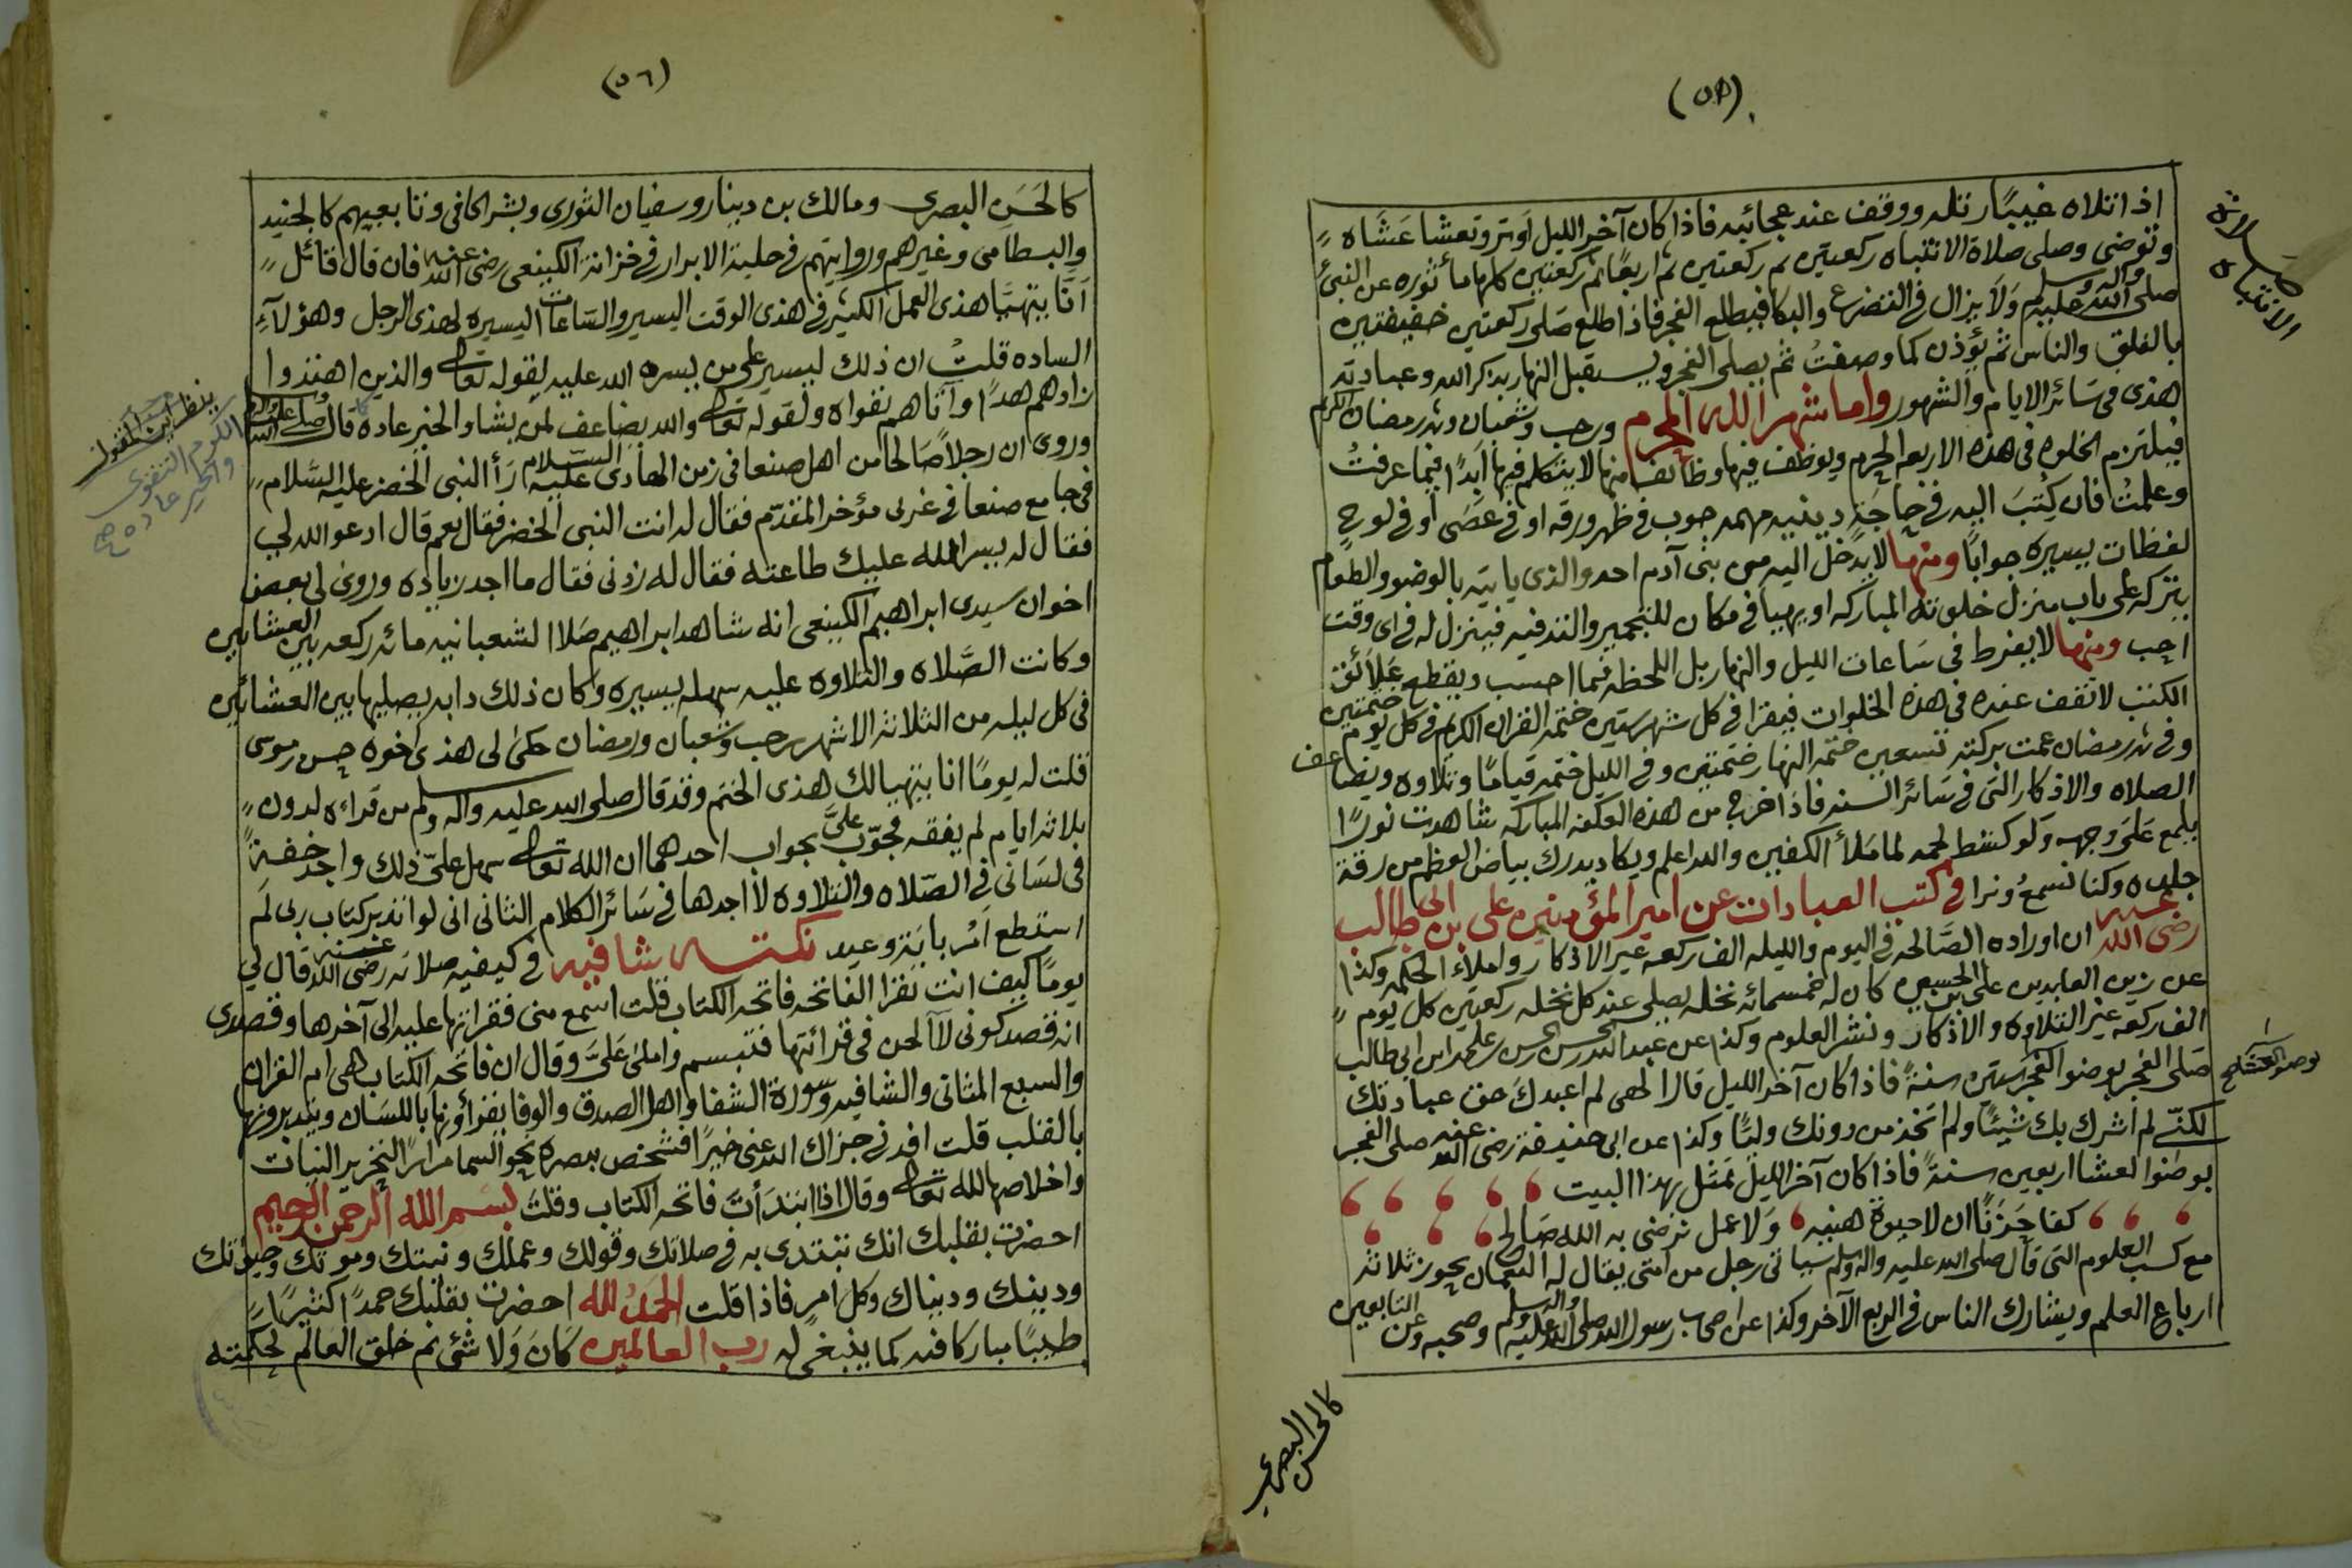 (٥٥)
اذا تلاه غيبًا رتله ووقف عند عجائبه فاذا كان آخر الليل أوتر وتعشا عَشَاه
وتوضى وصلى صلاة الانتباه ركعتين ثم ركعتين ثم اربعًا ثم ركعتين كلها مأثوره عن النبئ
صلى الله عليه وآله وسلم وَلا يزال في التضرع والبكا فيطلع الفجر فاذا طلع صَلى ركعتين خفيفتين
بالفلق والناس ثم يؤذن كما وصفتُ ثم يصلى الفجر ويستقبل النهار بذكر الله وعبادته
هذى فى سَائر الايام والشهور واما شهر الله المحرم ورجب وشعبان وشهر رمضان الكريم
فيلتزم الخلوه فى هذه الاربعه الحرم ويوظف فيها وظائف منها لا يتكلم فيها أبدًا فيما عرفتُ
وعلمتُ فان كُتبَ اليه في حاجَةٍ دينيه مهمه جوب في ظهر ورقه او في عصَى أو في لوحٍ
لفظات يسيره جوابًا ومنها لا يدخل اليه من بنى آدم احد والذى ياتيه بالوضو والطعام
يتركه على باب منزل خلوته المباركه او يهيا في مكان للتجمير والتدفيه فينزل له في اى وقت
احب ومنها لا يفرط فى سَاعات الليل والنهار بل اللحظه فيما احسب ويقطع عَلائق
الكتب لا تقف عنده في هذه الخلوات فيقرا في كل شهر ستين ختمه القران الكريم في كل يوم ختمتين
وفي شهر رمضان عمت بركته تسعين ختمه النهار ختمتين وفي الليل ختمه قيامًا وتلاوه ويضاعف
الصلاه والاذكار التى في سَائر السنه فاذا خرج من هذه العكفه المباركه شاهدت نورًا
يلمع عَلى وجهه ولو كشط لحمه لما مَلأ الكفين والله اعلم ويكاد يدرك بياض العظم من رقة
جلده وكنا نسمعُ ونرا في كتب العبادات عن امير المؤمنين على بن ابى طالب
رضى الله عنه ان اوراده الصَّالحه في اليوم والليله الف ركعه غير الاذكار واملاء الحكمه وكذا
عن زين العابدين على بن الحسين كان له خمسمائه نخله يصلى عند كل نخله ركعتين كل يوم
الف ركعه غير التلاوه والاذكار ونشر العلوم وكذا عن عبدالله بن الحسن بن الحسن بن على بن ابى طالب
صَلى الفجر بوضوا الفجر ستين سنةً فاذا كان آخر الليل قال الهى لم اعبدكَ حق عبادتك
لكنّى لم أشرك بك شيئًا ولم أتخذ من دونك وليًا وكذا عن ابى حنيفة رضى الله عنه صلى الفجر
بوضوا لعشا اربعين سنةً فاذا كان آخر الليل تمَثل بهذا البيت
كفا حَزَنًا ان لا حيوة هنيه وَلا عمل ترضى به الله صَالح
مع كسب العلوم التى قال صلى الله عليه واله وسلم سياتى رجل من أمتى يقال له النعمان يحوز ثلاثة
ارباع العلم ويشارك الناس في الربع الآخر وكذا عن اصحاب رسول الله صلى الله عليه واله وسلم وصحبه وعن التابعين
كالحسن البصرى
صلاة
الانتباه
بوضو العشا صح
(٥٦)
كالحَسَن البصرى ومالك بن دينار وسفيان الثورى وبشر الحافى وتابعيهم كالجنيد
والبسطامى وغيرهم وروايتهم في حلية الابرار في خزانة الكينعى رضى الله عنه فان قال قائل
أنَّا يتهيَّا هذى العمل الكثير في هذى الوقت اليسير والسَّاعات اليسيره لهذى الرجل وهؤلآءِ
الساده قلتُ ان ذلك ليسير على من يسره الله عليه لقوله تعالى والذين اهتدوا
زادهم هدًا وآتاهم تقواه ولقوله تعالى والله يضاعف لمن يشا والخير عاده قال صلى الله عليه واله وسلم
وروى ان رجلاً صَالحا من اهل صنعا في زمن الهادى عليه السلام رَأ النبى الخضر عليه السَّلام
في جامع صنعا في غربى مؤخر المقدّم فقال له انت النبى الخضر فقال نعم قال ادعو الله لى
فقال له يسر الله عليك طاعته فقال له زدنى فقال ما اجد زياده وروى لى بعض
اخوان سيدى ابراهيم الكينعى انه شاهد ابراهيم صَلا الشعبانيه مائه ركعه بين العشائين
وكانت الصَّلاه والتلاوه عليه سهله يسيره وكان ذلك دابه يصليها بين العشائين
في كل ليله من الثلاثه الاشهر رجب وشعبان ورمضان حكى لى هذى اخوه حسن بن موسى
قلت له يومًا انا يتهيا لك هذى الختم وقد قال صلى الله عليه واله وسلم من قراءه لدون
ثلاثه ايام لم يفقه فجوّب علىَّ بجواب احدهما ان الله تعالى سهل علىّ ذلك واجد خفةً
فى لسَانى في الصّلاه والتلاوه لا اجدها في سَائر الكلام الثانى انى لو اتدبر كتاب ربى لَم
استطع أمُر بايَة وعيد نكته شافيه في كيفيه صلاته رضى الله عنه قال لى
يومًا كيف انت تقرا الفاتحه فاتحه الكتاب قلت اسمع منى فقراتها عليه الى آخرها وقصدى
انه قصد كونى لآ الحن في قرائتها فتبسم واملى عَلىَّ وقال ان فاتحه الكتاب هى ام القران
والسبع المثانى والشافيه وسورة الشفا واهل الصدق والوفا يقرأونها باللسَان ويتدبرونها
بالقلب قلت افدنى جزاك الله عنى خيرًا فشخص ببصره نحو السما مرارًا لتحرير النيات
واخلاصها لله تعالى وقال اذا ابتدَأتَ فاتحه الكتاب وقلتَ بسم الله الرحمن الرحيم
احضرت بقلبك انك تبتدى به في صلاتك وقولك وعملك ونيتك وموتك وحيوتك
ودينك ودنياك وكل أمرٍ فاذا قلت الحمدُ لله احضرت بقلبك حمدًا كثيرًا
طيبًا مباركا فيه كما ينبغى له رب العالمين كَانَ وَلا شئى ثم خلق العالم لحكمته
ينظر اين المقول
الكرم التقوى
والخير عاده صح